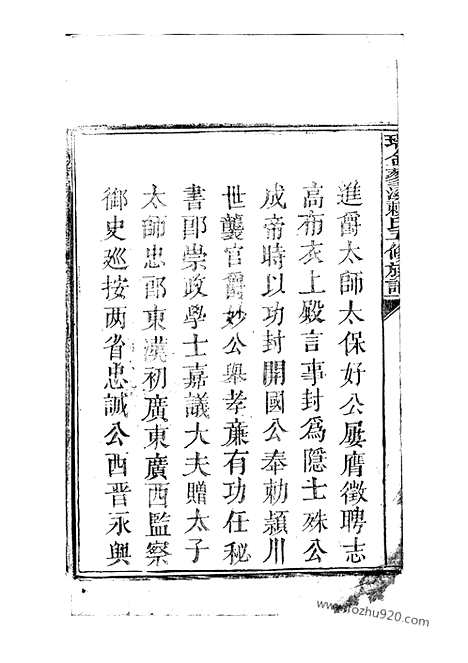 進爵太師太保好公屢膺徵聘志
高布衣上殿言事封爲隱士殊公
成帝時以功封開國公奉勅頴川
世襲官爵妙公舉孝廉有功任秘
書郎崇政學士嘉議大夫贈太子
太師忠郎東漢初廣東廣西監察
御史廵按两省忠誠公西晋永興
氏修族譜
www.fozhu920.com